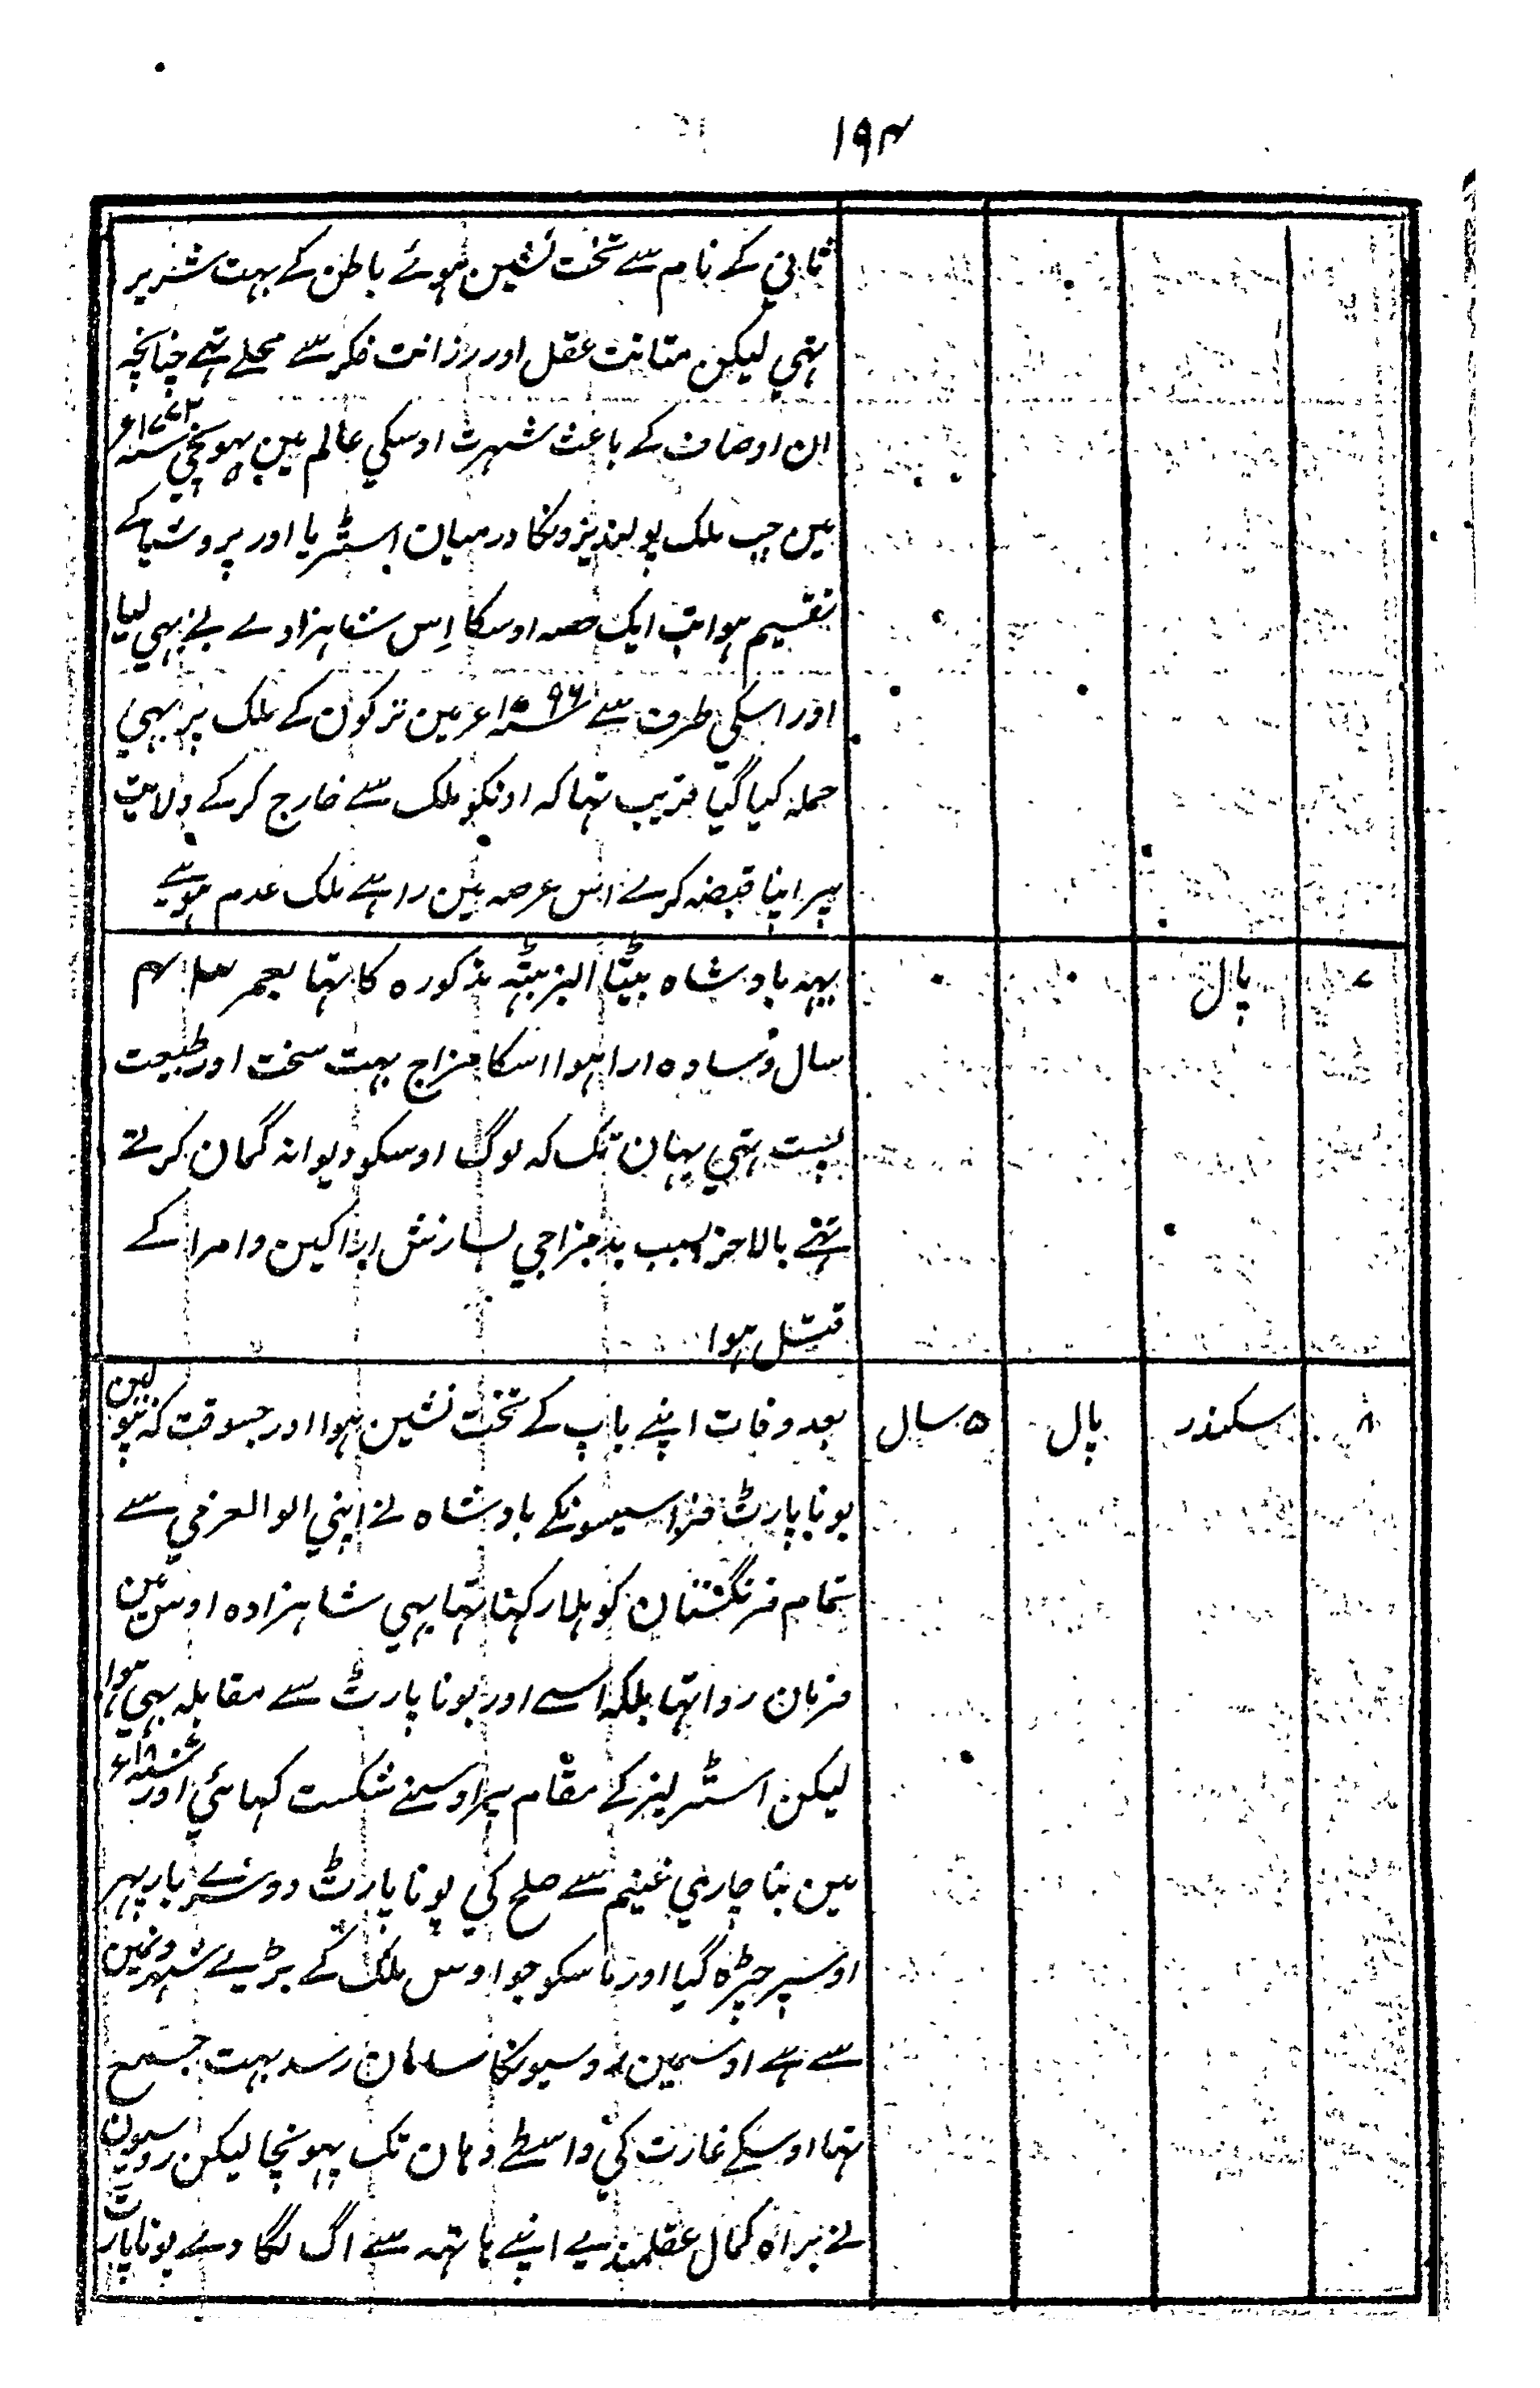 ۱۹۴
ثانی کے نام سے تخت نشین ہوئے باطن کے بہت شریر
تہی لیکن متانت عقل اور رزانت فکر سے محلے تہے چنانچہ
ان اوصاف کے باعث شہرت اوسکی عالم مین پہونچی سنہ ۱۷۷۲ء
مین جب ملک پولینڈیزونکا درمیان اسٹریا اور پروشیا کے
تقسیم ہوا تب ایک حصہ اوسکا اِس شاہزادے نے بہی لیا
اور اسکی طرف سے سنہ ۱۷۹۶ء مین ترکون کے ملک پر بہی
حملہ کیا گیا قریب تہا کہ اونکو ملک سے خارج کرکے ولایت
پر اپنا قبضہ کرے اس عرصہ مین راہے ملک عدم ہوئے
۷ پال یہہ بادشاہ بیٹا الیزبیٹہ مذکورہ کا تہا بعمر ۴۳
سال وسادہ ارا ہوا اسکا مزاج بہت سخت اور طبیعت
پست تہی یہان تک کہ لوگ اوسکو دیوانہ گمان کرتے
تہے بالاخر بسبب بدمزاجی بسازش اراکین وامرا کے
قتل ہوا
۸ سکندر پال ۵ سال بعد وفات اپنے باپ کے تخت نشین ہوا اور جسوقت کہ نپولین
بوناپارٹ فراسیسونکے بادشاہ نے اپنی الوالعزمی سے
تمام فرنگستان کو ہلا رکہا تہا یہی شاہزادہ اوس مین
فرمان روا تہا بلکہ اسے اور بوناپارٹ سے مقابلہ بہی ہوا
لیکن اسٹرلیز کے مقام پر اوسنے شکست کہائی اور سنہ ۱۸۰۷ء
مین بناچاری غنیم سے صلح کی بوناپارٹ دوسرے بار پہر
اوسپر چڑہ گیا اور ماسکو جو اوس ملک کے بڑے شہرونمین
سے ہے اوسمین روسیونکا سامان رسد بہت جمع
تہا اوسکے غارت کی واسطے وہان تک پہونچا لیکن روسیون
نے براہ کمال عقلمندیے اپنے ہاتہہ سے اگ لگا دے بوناپارٹ